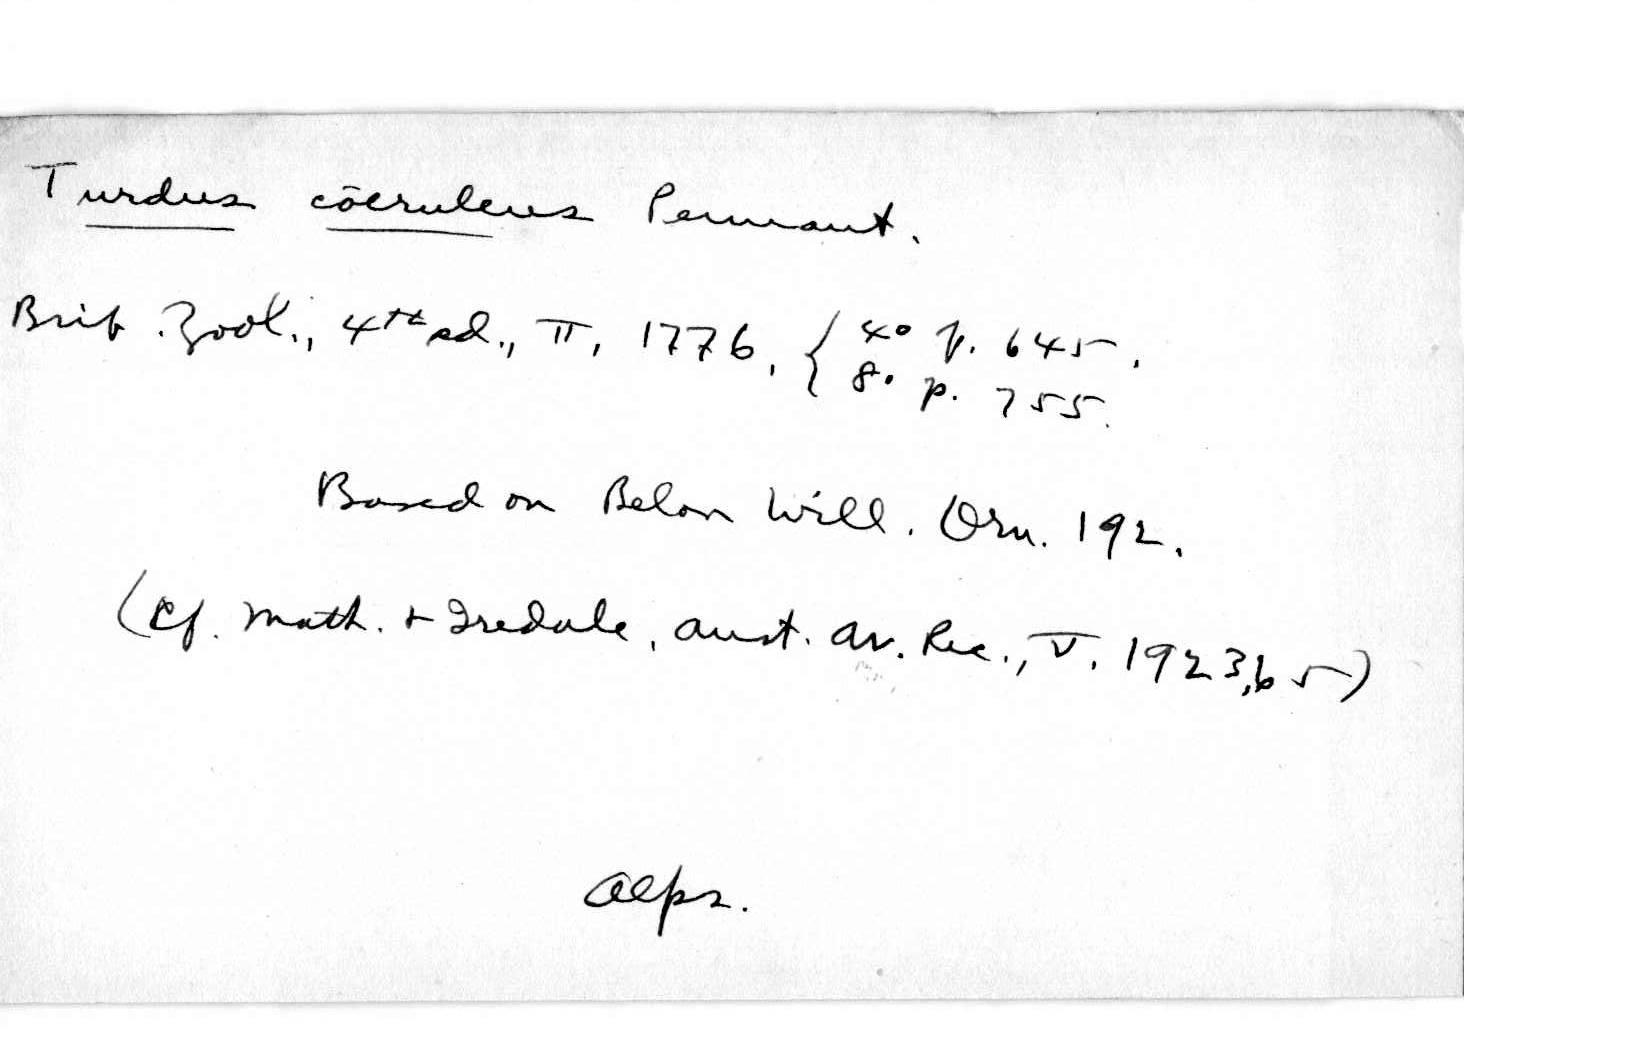 Turdus cōeruleus Pennant.
Brit. Zool., 4th ed., II, 1776, { 4° p. 645.
8° p. 755.
Based on Belon Will. Orn. 192.
(Cf. Math. + Iredale, Aust. Av. Rec., V, 1923, 65)
Alps.